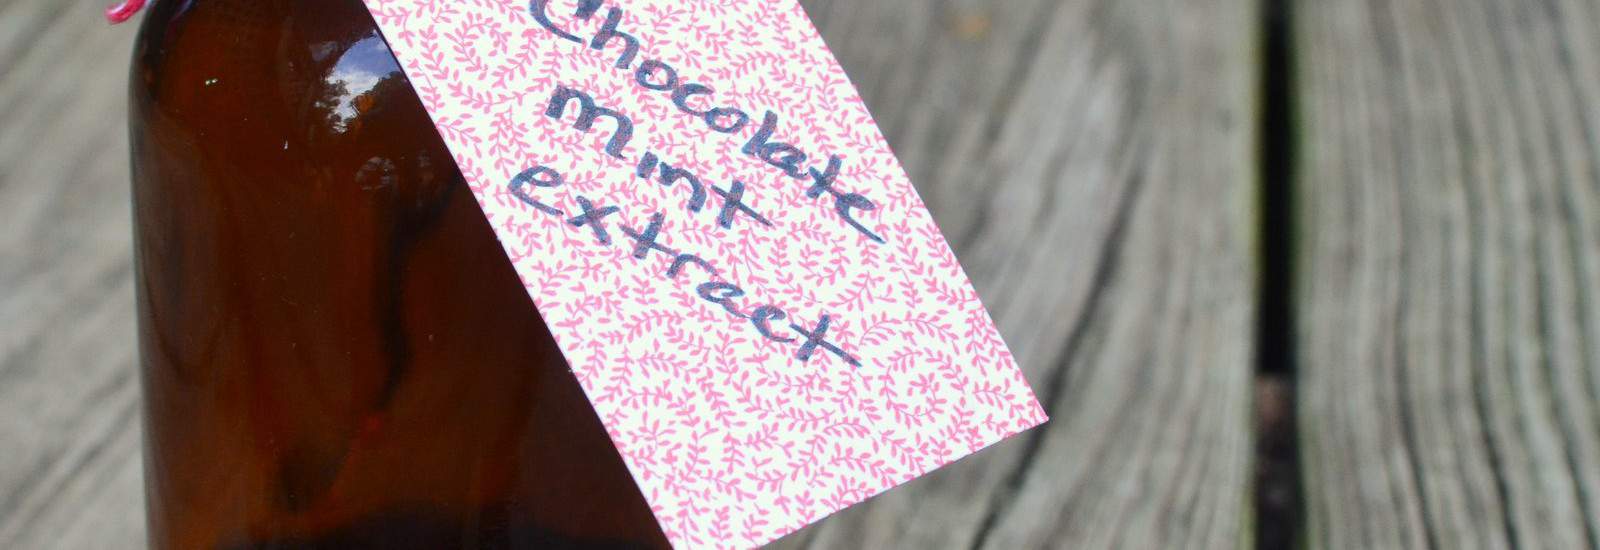 Chocolate
mint
extract